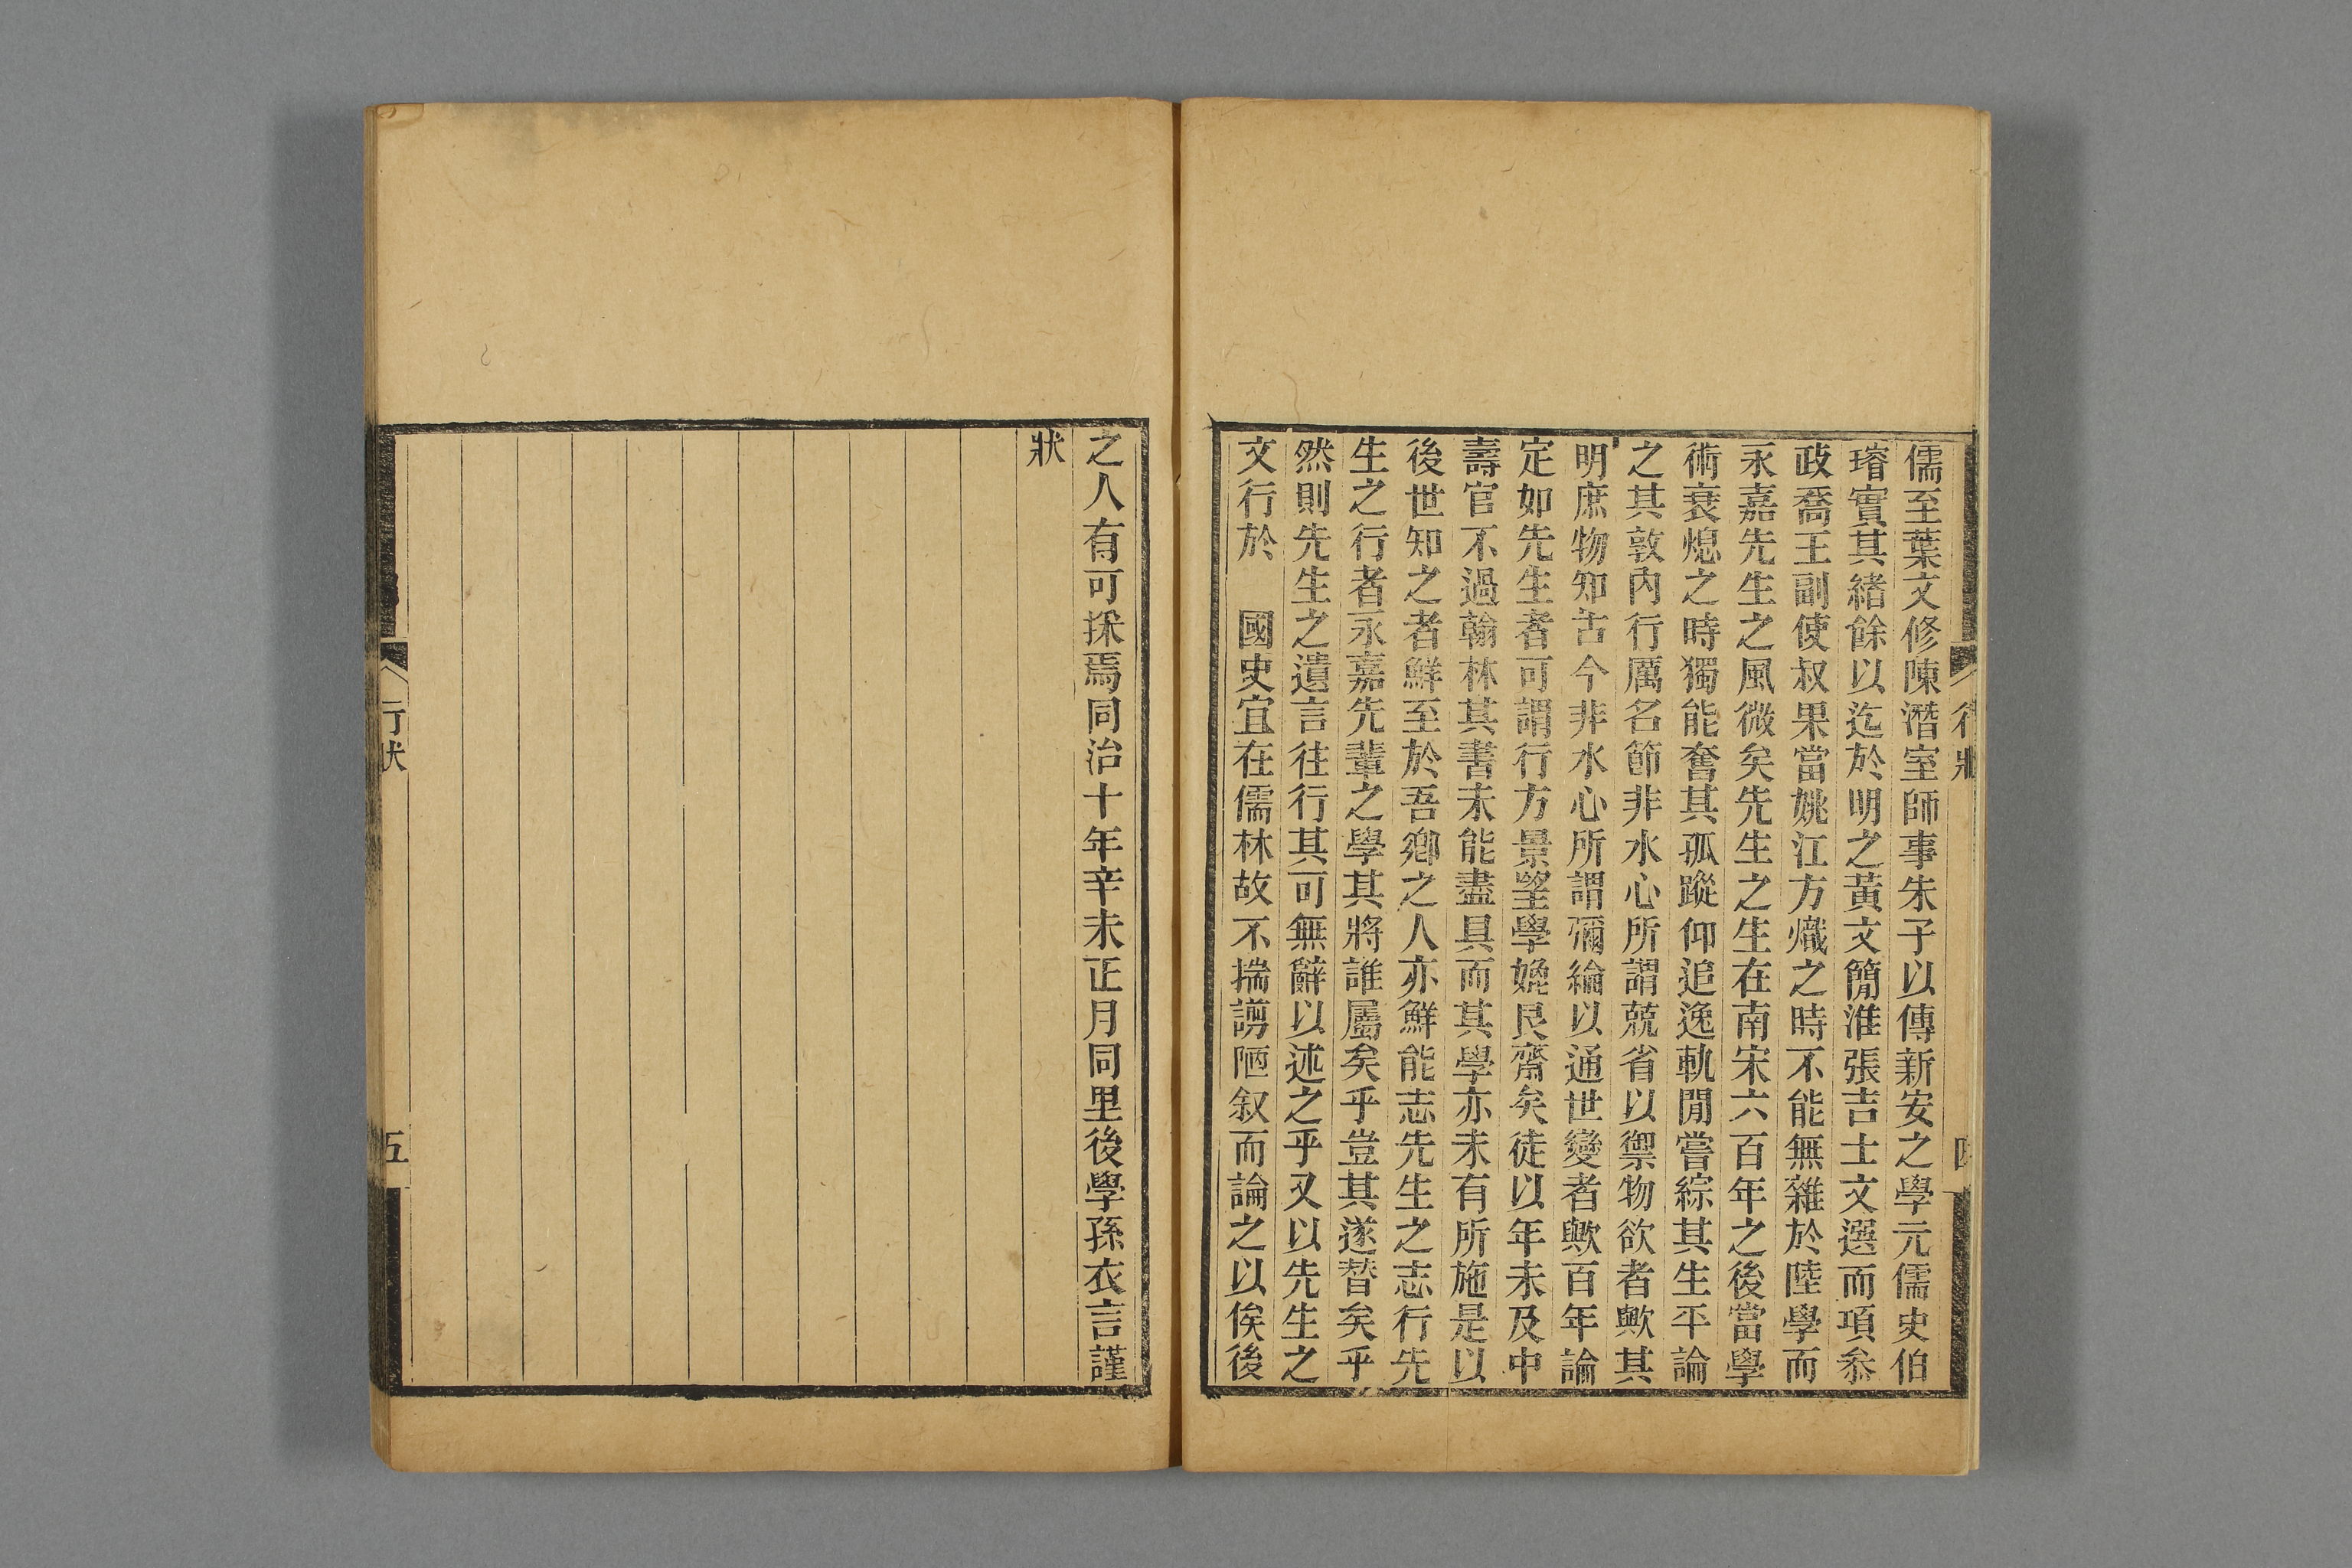 行狀
四
儒至葉文修陳潛室師事朱子以傳新安之學元儒史伯
璿實其緒餘以迄於明之黃文簡淮張吉士文選而項叅
政喬王副使叔果當姚江方熾之時不能無雜於陸學而
永嘉先生之風微矣先生之生在南宋六百年之後當學
術衰熄之時獨能奮其孤蹤仰追逸軌閒嘗綜其生平論
之其敦內行厲名節非水心所謂兢省以禦物欲者歟其
明庶物知古今非水心所謂彌綸以通世變者歟百年論
定如先生者可謂行方景望學媲艮齋矣徒以年未及中
壽官不過翰林其書未能盡具而其學亦未有所施是以
後世知之者鮮至於吾鄉之人亦鮮能志先生之志行先
生之行者永嘉先輩之學其將誰屬矣乎豈其遂替矣乎
然則先生之遺言往行其可無辭以述之乎又以先生之
文行於 國史宜在儒林故不揣謭陋叙而論之以俟後
之人有可採焉同治十年辛未正月同里後學孫衣言謹
狀
行狀
五